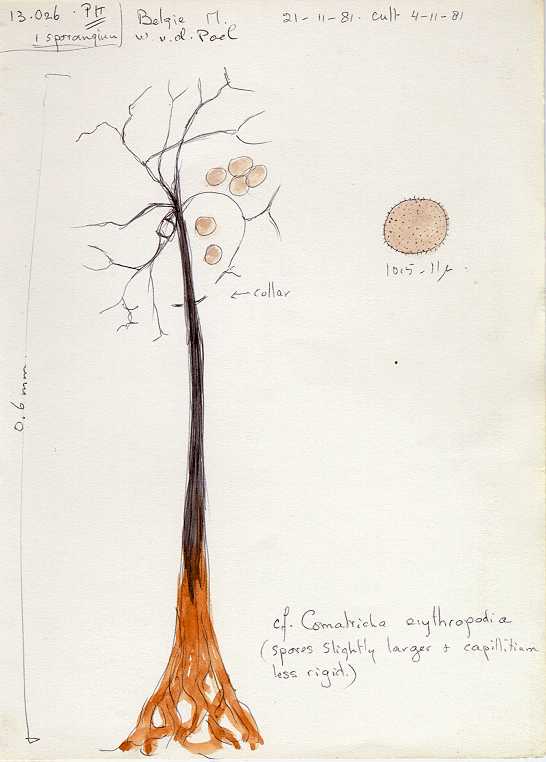 13.026 . PH
1 sporangium
Belgie M.
w. v.d. Poel
21-11-81. cult 4-11-81
10.5-11µ.
← collar
0.6 mm.
cf. Comatricha erythropodia
(spores slightly larger + capillitium
less rigid.)